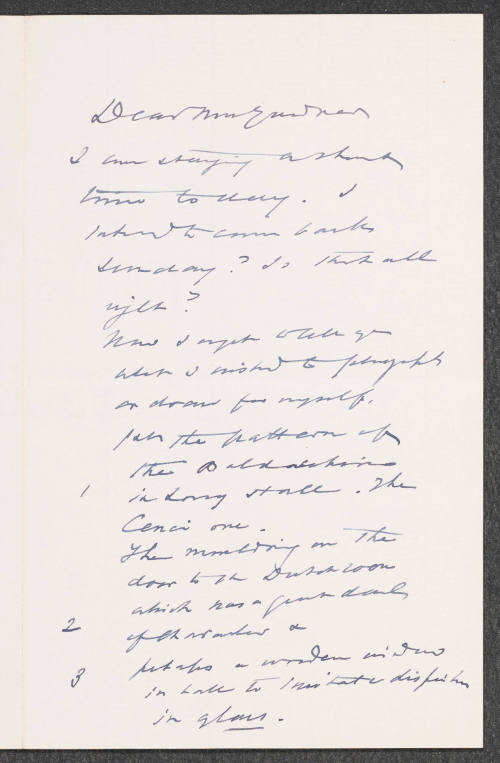 Dear Mrs Gardner
I am staying a short
time to day. I
intend to come back
Sunday? Is that all
right?
Now I ought to tell you
what I wished to photograph
or draw for myself.
1st the pattern of
the Baldachino
1 in Long stall. The
Cenci one.
The moulding on the
door to the Dutch room
which has a great deal
2 of character &
3 perhaps a wooden window
in hall to imitate
in glass.